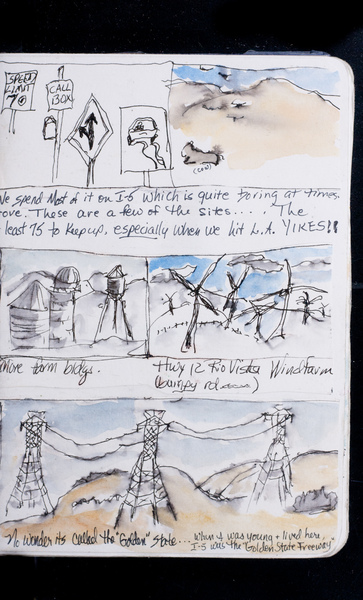 SPEED
LIMIT
70
CALL
BOX
(COW)
We spend Most of it on I-5 which is quite boring at times.
ove. These are a few of the sites..... The
least 75 to keep up, especially when we hit L.A. YIKES!!
More farm bldgs.
Hwy 12 Rio Vista Wind Farm
(bumpy rd
No Wonder its called the "Golden" State... when I was young + lived here,
I-5 was the "Golden State Freeway"